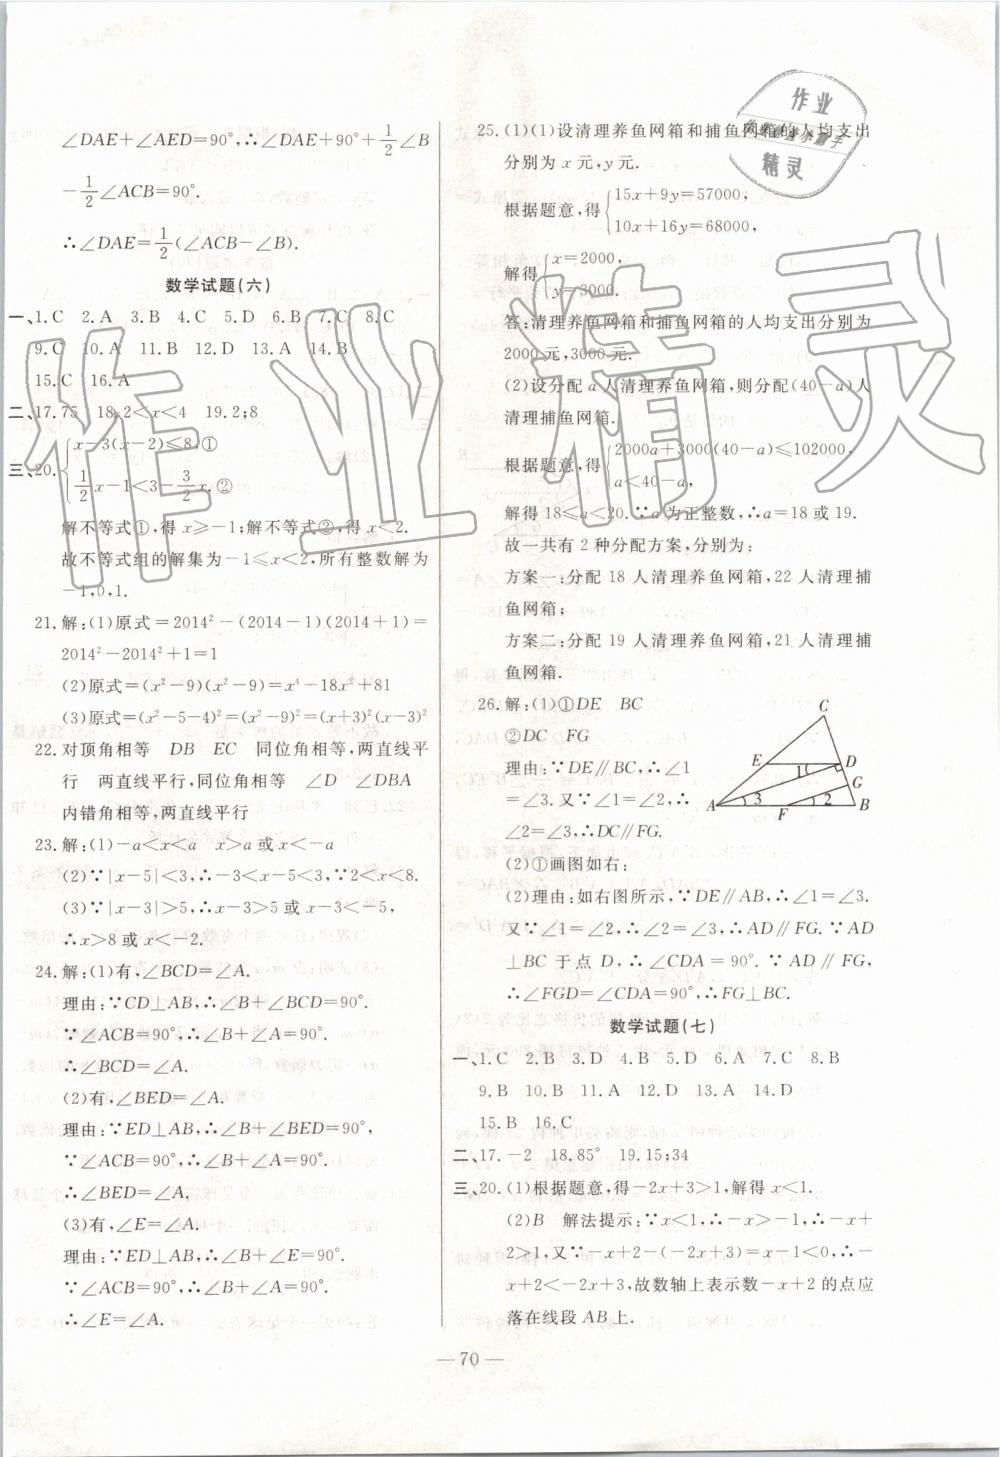 ∠DAE+∠AED=90°,∴∠DAE+90°+1/2∠B
-1/2∠ACB=90°.
∴∠DAE=1/2(∠ACB-∠B).
数学试题(六)
一、1.C 2.A 3.B 4.C 5.D 6.B 7.C 8.C
9.C 10.A 11.B 12.D 13.A 14.B
15.C 16.A
二、17.75 18.2<x<4 19.2;8
三、20.{x-3(x-2)≤8,①
1/2x-1<3-3/2x.②
解不等式①,得x≥-1;解不等式②,得x<2.
故不等式组的解集为-1≤x<2,所有整数解为
-1,0,1.
21.解:(1)原式=2014²-(2014-1)(2014+1)=
2014²-2014²+1=1
(2)原式=(x²-9)(x²-9)=x⁴-18x²+81
(3)原式=(x²-5-4)²=(x²-9)²=(x+3)²(x-3)²
22.对顶角相等 DB EC 同位角相等,两直线平
行 两直线平行,同位角相等 ∠D ∠DBA
内错角相等,两直线平行
23.解:(1)-a<x<a x>a或x<-a
(2)∵|x-5|<3,∴-3<x-5<3,∴2<x<8.
(3)∵|x-3|>5,∴x-3>5或x-3<-5,
∴x>8或x<-2.
24.解:(1)有,∠BCD=∠A.
理由:∵CD⊥AB,∴∠B+∠BCD=90°.
∵∠ACB=90°,∴∠B+∠A=90°.
∴∠BCD=∠A.
(2)有,∠BED=∠A.
理由:∵ED⊥AB,∴∠B+∠BED=90°,
∵∠ACB=90°,∴∠B+∠A=90°.
∴∠BED=∠A.
(3)有,∠E=∠A.
理由:∵ED⊥AB,∴∠B+∠E=90°.
∵∠ACB=90°,∴∠B+∠A=90°.
∴∠E=∠A.
25.(1)(1)设清理养鱼网箱和捕鱼网箱的人均支出
分别为x元,y元.
根据题意,得{15x+9y=57000,
10x+16y=68000,
解得{x=2000,
y=3000.
答:清理养鱼网箱和捕鱼网箱的人均支出分别为
2000元,3000元.
(2)设分配a人清理养鱼网箱,则分配(40-a)人
清理捕鱼网箱.
根据题意,得{2000a+3000(40-a)≤102000,
a<40-a,
解得18≤a<20.∵a为正整数,∴a=18或19.
故一共有2种分配方案,分别为:
方案一:分配18人清理养鱼网箱,22人清理捕
鱼网箱;
方案二:分配19人清理养鱼网箱,21人清理捕
鱼网箱.
26.解:(1)①DE BC
②DC FG
理由:∵DE∥BC,∴∠1
=∠3.又∵∠1=∠2,∴
∠2=∠3,∴DC∥FG.
C
E
1
D
G
A
3
F
2
B
(2)①画图如右:
(2)理由:如右图所示,∵DE∥AB,∴∠1=∠3.
又∵∠1=∠2,∴∠2=∠3,∴AD∥FG.∵AD
⊥BC于点D,∴∠CDA=90°.∵AD∥FG,
∴∠FGD=∠CDA=90°,∴FG⊥BC.
数学试题(七)
一、1.C 2.B 3.D 4.B 5.D 6.A 7.C 8.B
9.B 10.B 11.A 12.D 13.A 14.D
15.B 16.C
二、17.-2 18.85° 19.15;34
三、20.(1)根据题意,得-2x+3>1,解得x<1.
(2)B 解法提示:∵x<1,∴-x>-1,∴-x+
2>1,∵-x+2-(-2x+3)=x-1<0,∴-
x+2<-2x+3,故数轴上表示数-x+2的点应
落在线段AB上.
— 70 —
作业
精灵
作业精灵